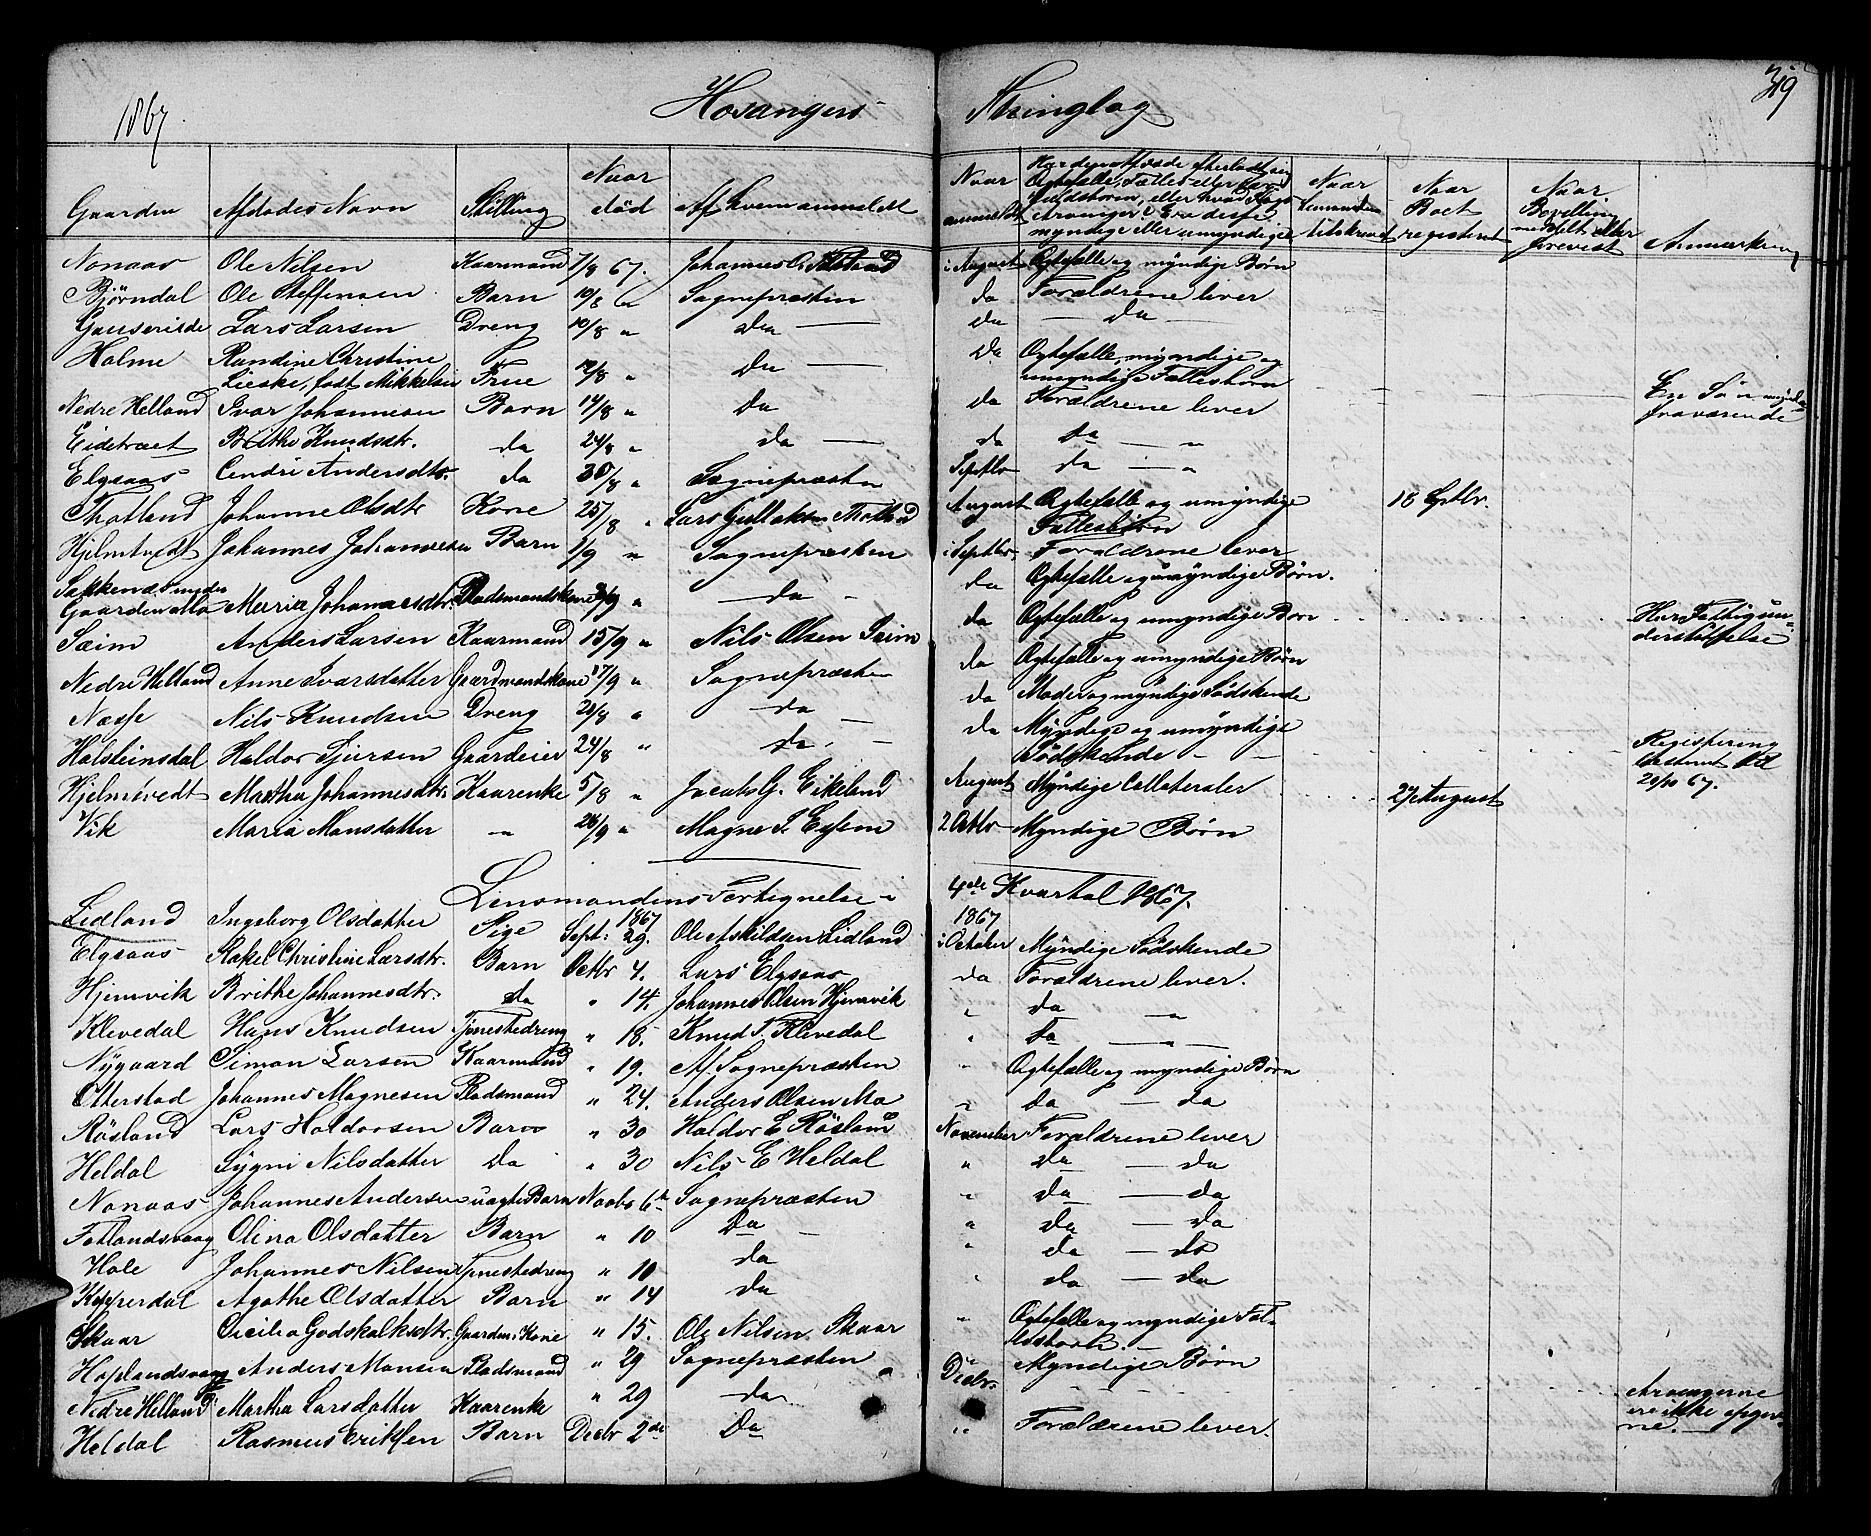 1867
Hosangers Thinglag
39
Gaarden | Afdødes Navn | Stilling | Naar død | Af hvem anmeldt | Naar anmeldt | Har den Afdøde efterladt sig Ægtefælle, Fælles eller Særkuldsbørn, eller hvad slags Arvinger? Era disse myndige eller umyndige | Naar | Naar Boet registeret | Naar Bevilling meddelt eller forevist | Anmærkning
Nonaas | Ole Nilsen | Kaarmand | 7/8 67. | Johannes O. | i August | Ægtefælle og myndige Børn
Bjørndal | Ole Steffensen | Barn | 10/8 " | Sognepræsten | da | Forældrene lever
Lars Larsen | Dreng | 10/8 " | da | da | da
Holme | Randine Christine | da | da | Ægtefælle, myndige og
Lieske, født Mikkelsen | Frue | 12/8 " | umyndige Fællesbørn
Nedre Helland | Ivar Johannesen | Barn | 14/8 " | da | da | Forældrene lever | En Søn myndig fraværende
Eidetræet | Brithe Knudsdtr. | da | 24/8 " | da | da | da "
Elgsaas | Cendri Andersdtr. | da | 30/8 " | Sognepræsten | Septbr | da "
Thotland | Johanne Olsdtr | Kone | 25/8 " | Lars Gullaksen Thotland | August | Ægtefælle og umyndige Fællesbørn | 18 Septbr.
Hjelmtvedt | Johannes Johannesen | Barn | 1/9 " | Sognepræsten | i Septbr. | Forældrene lever
Gaarden | Maria Johannesdtr. | Pladsmandskone | 9/9 " | da | da | Ægtefælle og umyndige Børn.
Sæim | Anders Larsen | Kaarmand | 15/9 " | Nils Olsen Sæim | da | Ægtefælle og umyndige Børn | Har Fattigunderstøttelse
Nedre Helland | Anne Ivarsdatter | Gaardmandskone | 17/9 " | Sognepræsten | da | Ægtefælle og umyndige Børn
Næsse | Nils Knudsen | Dreng | 21/8 " | da | da | Moder og myndige Sødskende
Holsteinsdal | Haldor Sjursen | Gaardeier | 24/8 " | da | da | Myndige og umyndige Sødskende | Registering 21/10 67.
Hjelmtvedt | Martha Johannesdtr. | Kaarenke | 5/8 " | Jacob G. Eikeland | August | Myndige Collateraler | 27 August
Vik | Maria Monsdatter | " | 26/9 " | Magne S. | 2 Octbr | Myndige Børn
Lensmandens Fortegnelse i 4de Kvartal 1867.
Lidland | Ingeborg Olsdatter | Pige | 1867 Sept: 29. | Ole Askildsen Lidland | 1867 i October | Myndige Sødskende
Elgsaas | Rakel Christine Larsdtr. | Barn | Octbr 4. | Lars Elgsaas | da | Forældrene lever.
Hjemvik | Brithe Johannesdtr. | da | " 14. | Johannes Olsen Hjemvik | " | da "
Klevedal | Hans Knudsen | Tjenestedreng | " 18. | Knud T. Klevedal | " | da "
Nygaard | Simon Larsen | Kaarmand | " 19. | Af Sognepræsten | " | Ægtefælle og myndige Børn
Otterstad | Johannes Magnesen | Pladsmand | " 24. | Anders Olsen Mo | " | da — da
Røsland | Lars Haldorsen | Barn | " 30 | Haldor E Røsland | November | Forældrene lever
Heldal | Sygni Nilsdatter | da | " 30 | Nils E Heldal | " | da — da
Nonaas | Johannes Andersen | uægte Barn | Novbr 6te | Sognepræsten | " | da — da
Fotlandsvaag | Olina Olsdatter | Barn | " 10 | Da | " | da — da
Hole | Johannes Nilsen | Tjenestedreng | " 10 | da | " | da — da
Kopperdal | Agathe Olsdatter | Barn | " 14 | da | " | da — da
Skaar | Cicilia Godskalksdtr. | Gaardm. Kone | " 15. | Ole Nilsen Skaar | " | Ægtefælle og myndige Fællesbørn.
Hoplandsvaag | Anders Monsen | Pladsmand | " 29 | Sognepræsten | " | Myndige Børn
Nedre Helland | Martha Larsdatter | Kaarenke | " 29 | da | Decbr. | Arvingerne ere ikke opgivne.
Heldal | Rasmus Eriksen | Barn | Decbr 2de | Da | " | Forældrene lever.